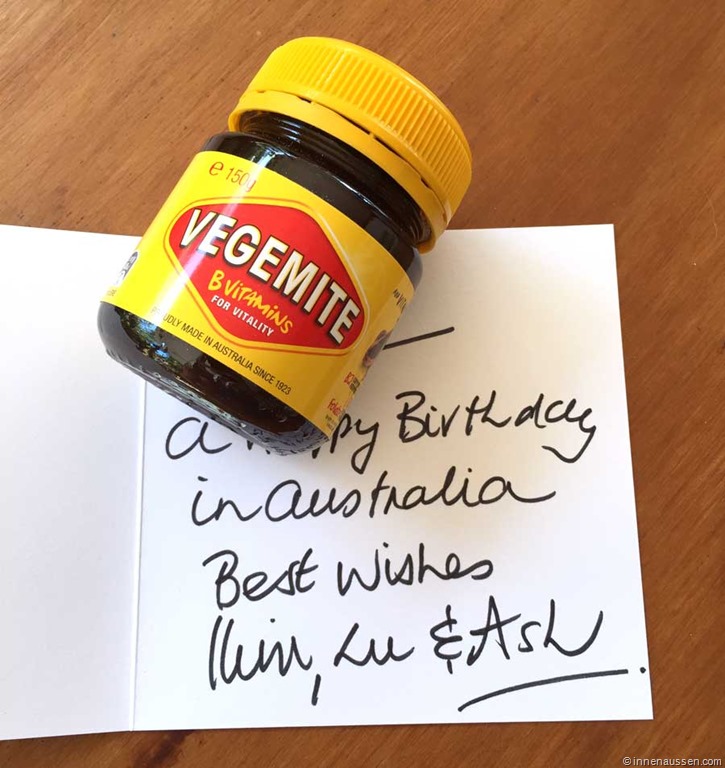 e 150g
VEGEMITE
B VITAMINS
FOR VITALITY
PROUDLY MADE IN AUSTRALIA SINCE 1923
a Happy Birthday
in Australia
Best Wishes
Lu & Ash
© innenaussen.com